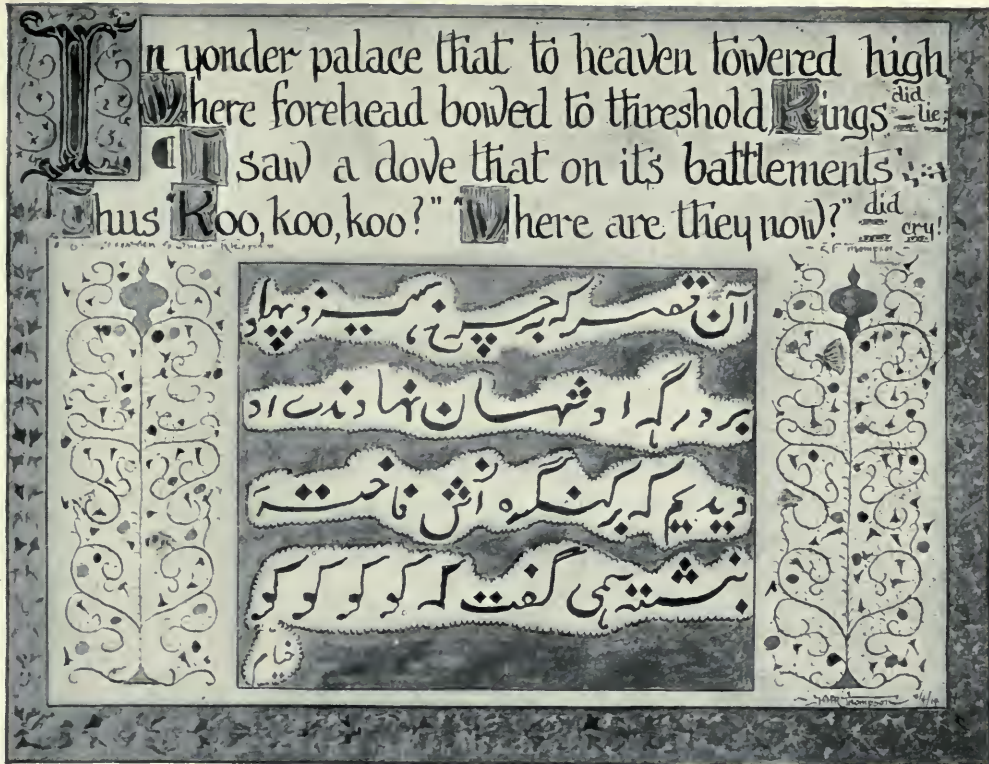 In yonder palace that to heaven towered high
Where forehead bowed to threshold, Kings did lie;
¶ I saw a dove that on its battlements
Thus "Koo, koo, koo?" "Where are they now?" did cry!
E F Thompson
آن قصر که بر چرخ همیزد پهلو
بر درگه او شهان نهادندے رو
دیدیم که بر کنگره اش فاختهٔ
بنشسته همی گفت که کو کو کو کو
خیام
Thompson